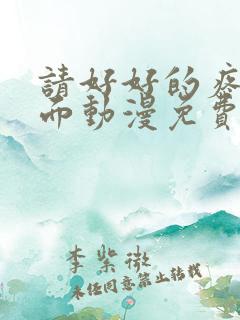 請好好的疼
而動漫免費
李紫微
未經同意禁止轉載